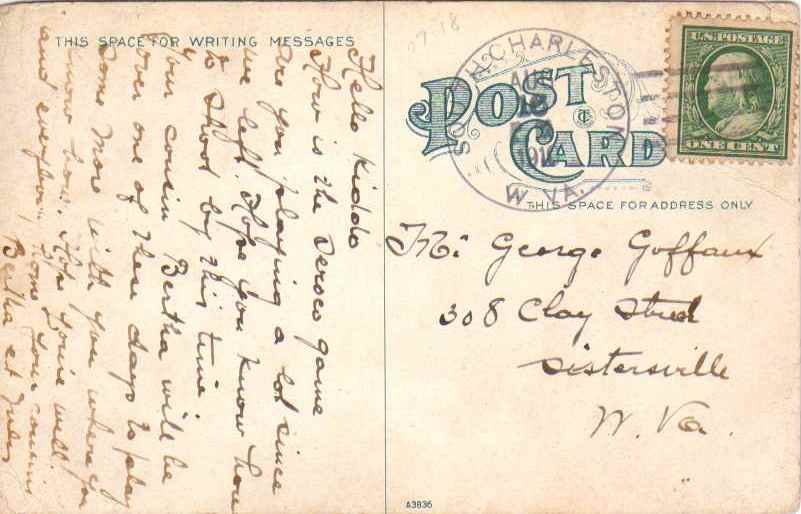 THIS SPACE FOR WRITING MESSAGES
Hello Kiddo
How is the Seroco game
Are you playing a lot since
we left. Hope you know how
to shoot by this time.
Your cousin Bertha will be
over one of these days to play
some more with you when you
know how. Hope you're well
and everybody home Your cousins
Bertha et Jules
07.18
POST
CARD
SOUTH CHARLESTON
AUG
W. VA.
U.S. POSTAGE
ONE CENT
THIS SPACE FOR ADDRESS ONLY
Mr George Goffaux
308 Clay Street
Sistersville
W. Va.
A3836